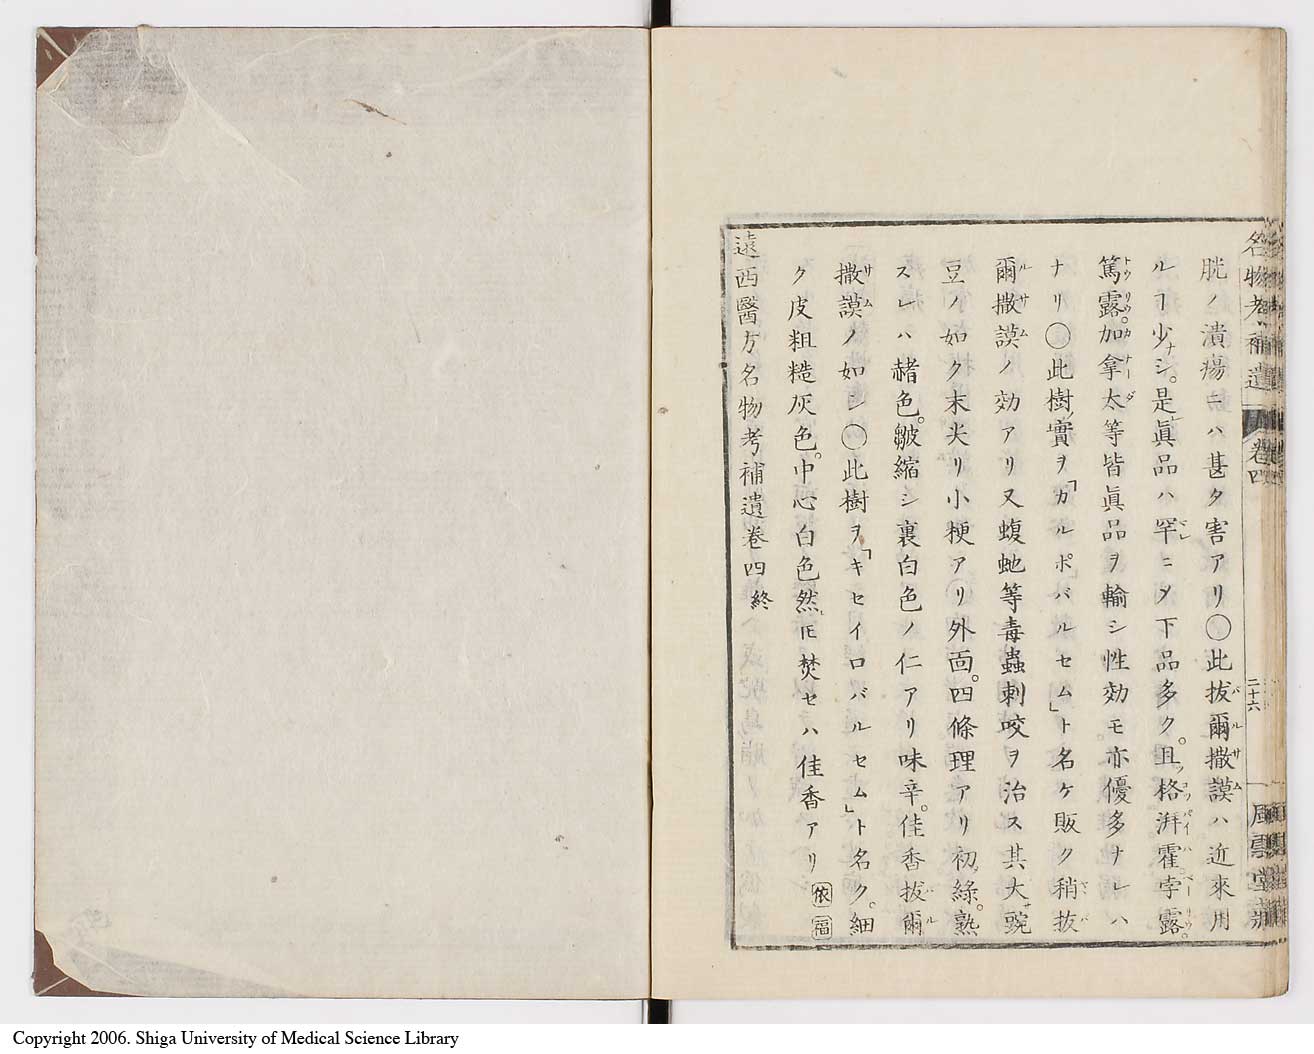 名物考補遺　卷四　二十六　風雲堂藏
胱ノ潰瘍ニハ甚タ害アリ〇此拔爾撒謨ハ近來用
ルヿ少ナシ。是レ眞品ハ罕レニメ下品多ク。且ツ格湃霍。孛露。
篤露。加拿太等皆眞品ヲ輸シ性効モ亦優多ナレハ
ナリ〇此樹ノ實ヲ「カルポバルセム」ト名ケ販ク稍拔
爾撒謨ノ効アリ又蝮虵等毒蟲刺咬ヲ治ス其大サ豌
豆ノ如ク末尖リ小梗アリ外面。四條理アリ初ハ綠。熟
スレハ赭色。皺縮シ裏白色ノ仁アリ味辛。佳香拔爾
撒謨ノ如シ〇此樹ヲ「キセイロバルセム」ト名ク。細
ク皮粗糙灰色。中心白色然レ𪜈焚セハ佳香アリ 依 福
遠西醫方名物考補遺卷四終
Copyright 2006. Shiga University of Medical Science Library